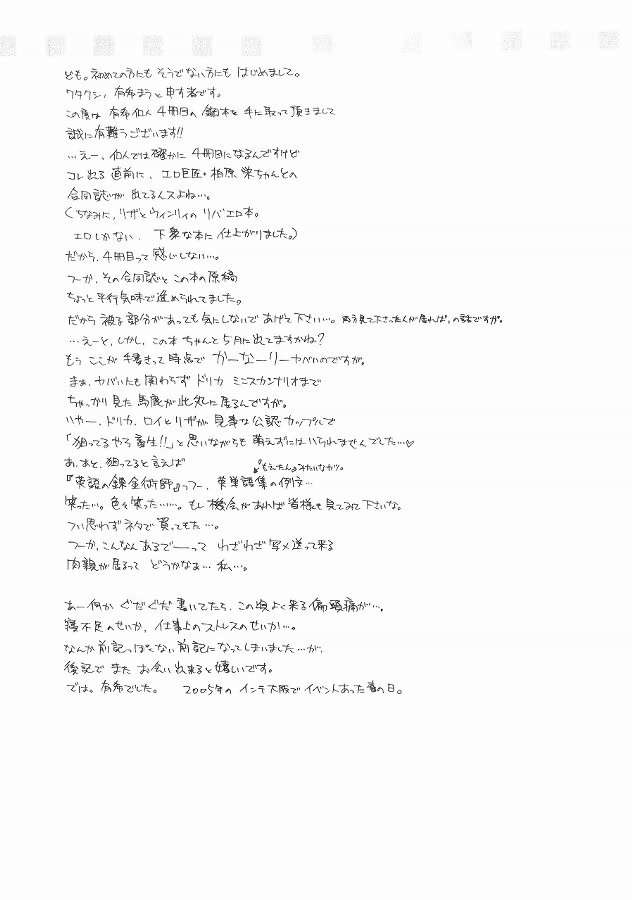 ども。初めての方にもそうでない方にもはじめまして。
ワタクシ、有希まうと申す者です。
この度は有希個人4冊目の鋼本を手に取って頂きまして
誠に有難うございます!!
…えー、個人では確かに4冊目になるんですけど
コレ出る直前に、エロ巨匠・柏原栄ちゃんとの
合同誌が出てるんスよね…。
(ちなみに、リザとウィンリィのリバエロ本。
エロしかない、下衆な本に仕上がりました。)
だから、4冊目って感じしない…。
つーか、その合同誌とこの本の原稿
ちょっと平行気味で進められてました。
だから被る部分があっても気にしないであげて下さい…。両方見て下さった人が居れば、の話ですが。
…えーと、しかし、この本ちゃんと5月に出てますかね?
もうここが手書きって時点でかーなーりーヤバいのですが。
まぁ、ヤバいにも関わらずドリカミニスカシナリオまで
ちゃっかり見た馬鹿が此処に居るんですが。
いやー、ドリカ、ロイとリザが見事な公認カップルで
「狙ってるやろ畜生!!」と思いながらも萌えずにはいられませんでした…♡
あ、あと、狙ってると言えば
『もえたん』みたいなヤツ。
『英語の錬金術師』っつー、英単語集の例文…
笑った…。色々笑った……。もし機会があれば皆様も見てみて下さいな。
つい思わずネタで買ってもた…。
つーか、こんなんあるでーーってわざわざ写メ送って来る
肉親が居るってどうかなぁ…私…。
あー何かぐだぐだ書いてたら、この頃よく来る偏頭痛が…。
寝不足のせいか、仕事上のストレスのせいか…。
なんか前記っぽくない前記になってしまいました…が、
後記でまたお会い出来ると嬉しいです。
では。有希でした。 2005年のインテ大阪でイベントあった春の日。